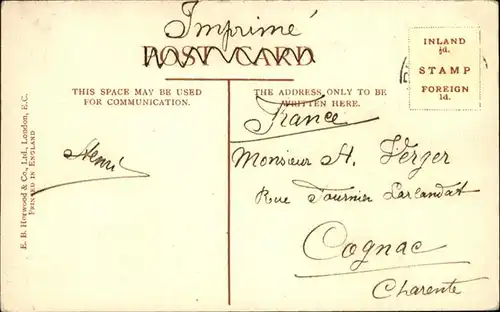 Imprimé
POST CARD
THIS SPACE MAY BE USED
FOR COMMUNICATION.
THE ADDRESS ONLY TO BE
WRITTEN HERE.
INLAND
½d.
STAMP
FOREIGN
1d.
E. B. Horwood & Co., Ltd., London, E.C.
PRINTED IN ENGLAND
France
Monsieur H. Verger
Rue Fournier Larlandat
Cognac
Charente